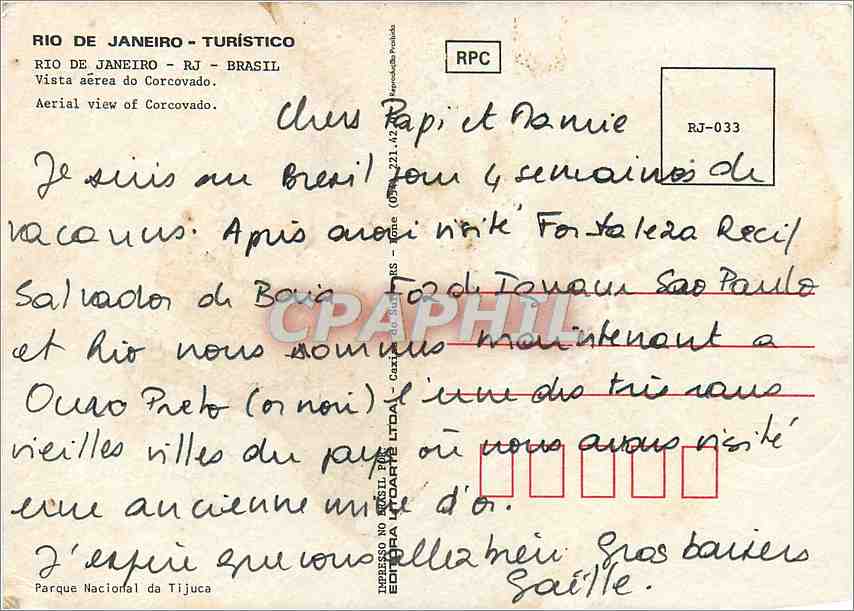 RIO DE JANEIRO - TURÍSTICO
RIO DE JANEIRO - RJ - BRASIL
Vista aérea do Corcovado.
Aerial view of Corcovado.
RPC
RJ-033
Chers Papi et Mamie
Je suis au Bresil pour 4 semaines de
vacances. Après avoir visité Fortaleza Recif
Salvador de Baia Foz do Iguacu Sao Paulo
et Rio nous sommes maintenant a
Ouro Preto (or noir) l'une des très rares
vieilles villes du pays où nous avons visité
une ancienne mine d'or.
J'espère que vous allez bien Gros baisers
Gaëlle.
Parque Nacional da Tijuca
IMPRESSO NO BRASIL POR
EDITORA LITOARTE LTDA. - Caxias do Sul - RS - Fone (054) 221.42
Reprodução Proibida
CPAPHIL